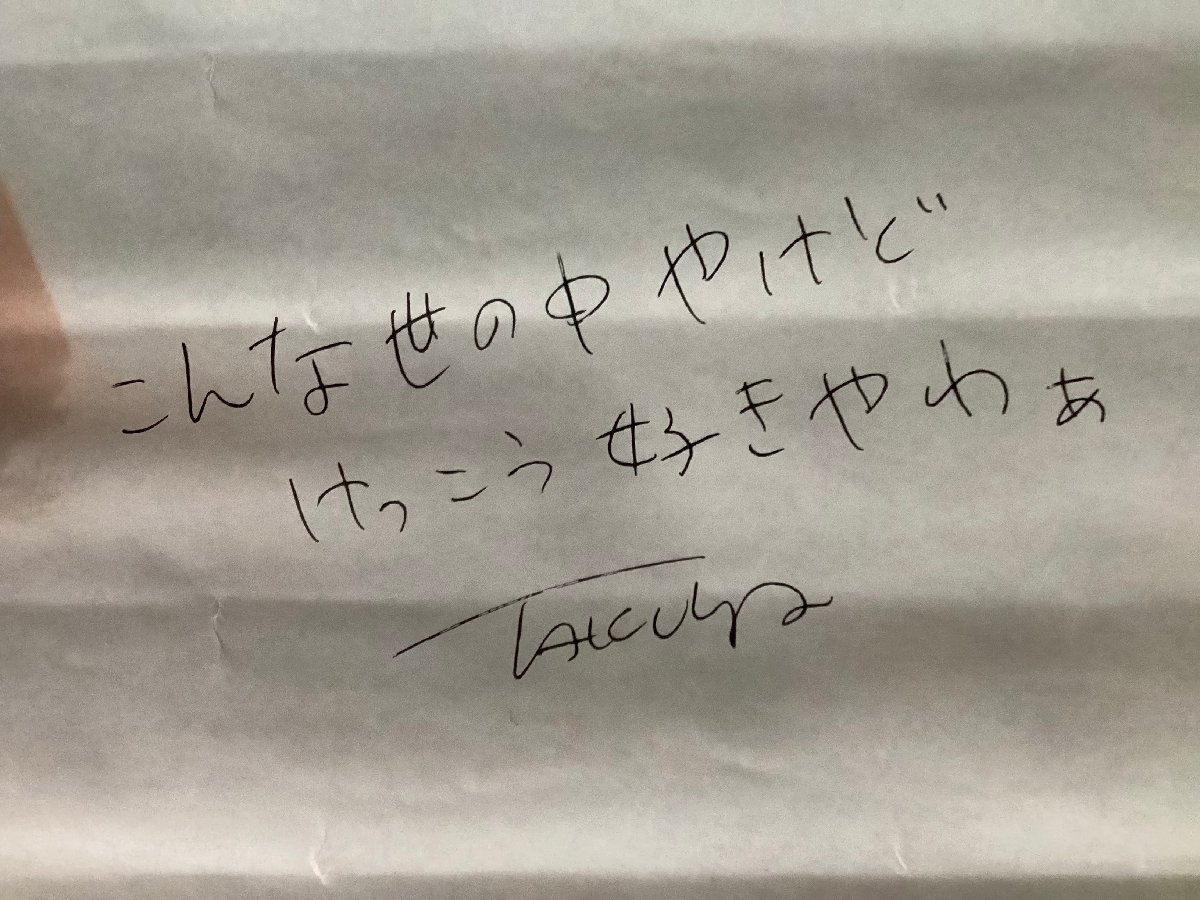 こんな世の中やけど
けっこう好きやわぁ
TAKUYA